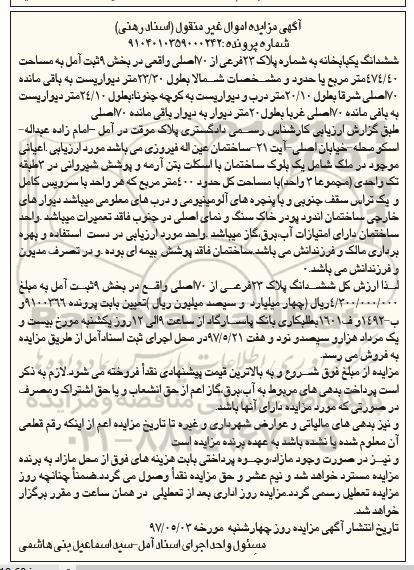 آگهی مزایده اموال غیر منقول (اسناد رهنی)
شماره پرونده: ۹۱۰۴۰۱۰۳۵۹۰۰۰۲۴۲
ششدانگ یکبابخانه به شماره پلاک ۲۳فرعی از ۷۰اصلی واقعی در بخش ۹ثبت آمل به مساحت
۴۷۴/۴۰متر مربع با حدود و مشخصات شمالا بطول ۲۳/۳۰متر دیواریست به باقی مانده
۷۰اصلی شرقا بطول ۲۰/۱۰متر درب و دیواریست به کوچه جنوبا:بطول ۲۴/۱۰متر دیواریست
به باقی مانده ۷۰اصلی غربا بطول ۲۰متر دیوار به دیوار باقی مانده ۷۰اصلی
طبق گزارش ارزیابی کارشناس رسمی دادگستری پلاک موقت در آمل –امام زاده عبداله-
اسکو محله-خیابان اصلی-آیت ۲۱-ساختمان عین اله فیروزی می باشد مورد ارزیابی .اعیانی
موجود در ملک شامل یک بلوک ساختمان با اسکلت بتن آرمه و پوشش شیروانی در ۳طبقه
تک واحدی (مجموعا ۳ واحد)با مساحت کل حدود ۴۰۰متر مربع که هر واحد با سرویس کامل
و یک تراس سقف جنوبی و با پنجره های آلومینیومی و درب های معلومی میباشد دیوار های
خارجی ساختمان اندود پودر خاک سنگ و نمای اصلی در جنوب فاقد تعمیرات میباشد .واحد
ساختمان دارای امتیازات آب،برق،گاز میباشد .واحد مورد ارزیابی در دست استفاده و بهره
برداری مالک و فرزندانش می باشد.ساختمان فاقد پوشش بیمه ای بوده .و در تصرف مدیون
و فرزندانش می باشد.۰
لذا ارزش کل ششدانگ پلاک ۲۳فرعی از ۷۰اصلی واقع در بخش ۹ثبت آمل به مبلغ
۴/۳۰۰/۰۰۰/۰۰۰ریال (چهار میلیارد و سیصد میلیون ریال )تعیین بابت پرونده ۹۱۰۰۳۶۶و
ب-۱۴۹۲و ف-۱۶۰۱بطلبکاری بانک پاسارگاد از ساعت ۹الی ۱۲روز یکشنبه مورخ بیست و
یک مرداد هزارو سیصدو نود و هفت ۹۷/۵/۲۱در محل اجرای ثبت اسنادآمل از طریق مزایده
به فروش می رسد.
مزایده از مبلغ فوق شروع و به بالاترین قیمت پیشنهادی نقدأ فروخته می شود.لازم به ذکر
است پرداخت بدهی های مربوط به آب،برق،گاز اعم از حق انشعاب و یا حق اشتراک ومصرف
در صورتی که مورد مزایده دارای آنها باشد.
و نیز بدهی های مالیاتی و عوارض شهرداری و غیره تا تاریخ مزایده اعم از اینکه رقم قطعی
آن معلوم شده یا نشده باشد به عهده برنده مزایده است
و نیز در صورت وجود مازاد،وجوه پرداختی بابت هزینه های فوق از محل مازاد به برنده
مزایده مسترد خواهد شد و نیم عشر و حق مزایده نقدأ وصول می گردد.ضمنأ چنانچه روز
مزایده تعطیل رسمی گردد.مزایده روز اداری بعد از تعطیلی در همان ساعت و مقرر برگزار
خواهد شد.
تاریخ انتشار آگهی مزایده روز چهارشنبه مورخه ۹۷/۰۵/۰۳
مسئول واحد اجرای اسناد آمل-سید اسماعیل بنی هاشمی